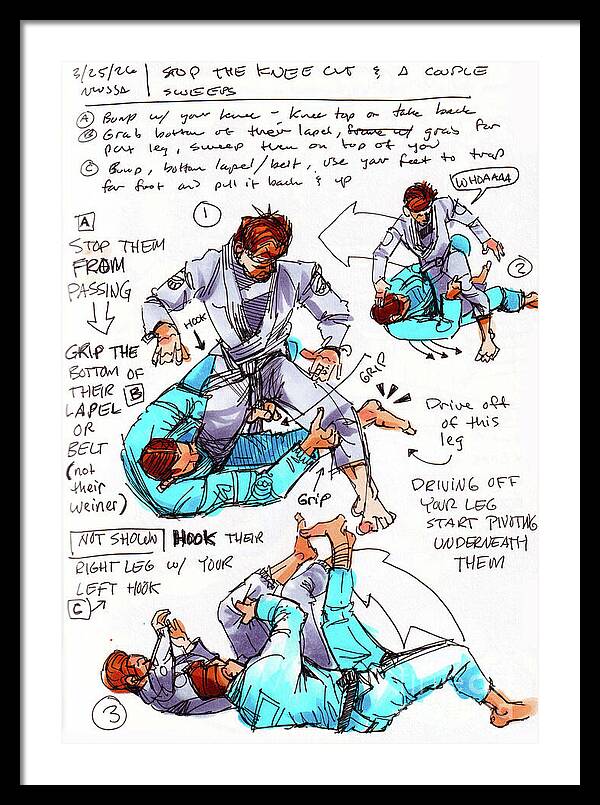 3/25/26 | STOP THE KNEE CUT & A COUPLE
SWEEPS
(A) Bump w/ your knee - Knee top or take back
(B) Grab bottom of their lapel, grab far
leg, sweep them on top of you
(C) Bump, bottom lapel/belt, use your feet to trap
far foot and pull it back & up
WHOAAAA
1
2
A
STOP THEM
FROM
PASSING
HOOK
GRIP THE
BOTTOM OF
THEIR B
LAPEL
OR
BELT
(not
their
weiner)
GRIP
GRIP
Drive off
of this
leg
DRIVING OFF
YOUR LEG
START PIVOTING
UNDERNEATH
THEM
NOT SHOWN HOOK THEIR
RIGHT LEG W/ YOUR
LEFT HOOK
C
3